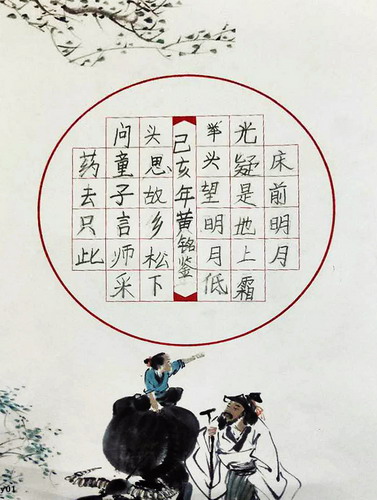 床前明月
光疑是地上霜
举头望明月低
己亥年黄铭鉴
头思故乡松下
问童子言师采
药去只此
y01